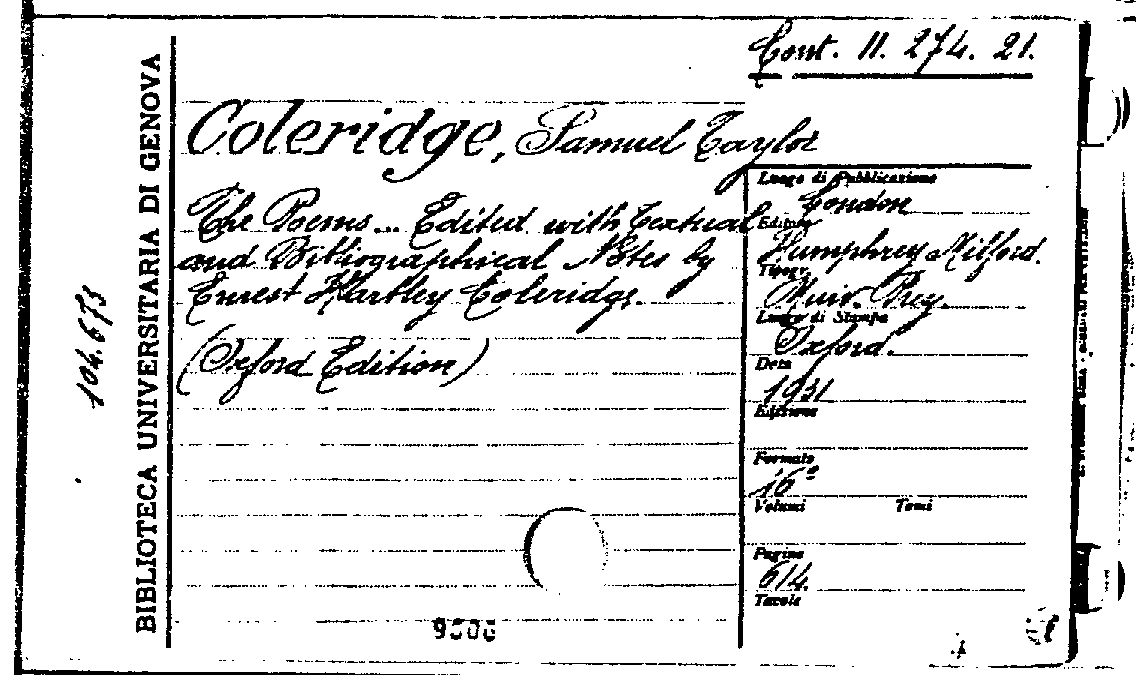 Cont. II. 274. 21.
Coleridge, Samuel Taylor
The Poems... Edited with Textual
and Bibliographical Notes by
Ernest Hartley Coleridge.
(Oxford Edition)
Luogo di Pubblicazione
London
Editore
Humphrey Milford.
Tipogr.
Luogo di Stampa
Oxford.
Data
1931
Edizione
Formato
16º
Volumi Tomi
Pagine
614.
Tavole
BIBLIOTECA UNIVERSITARIA DI GENOVA
104.673